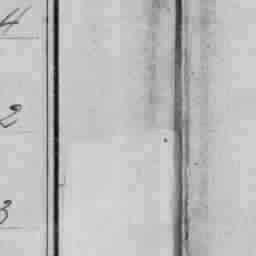 4
2
3